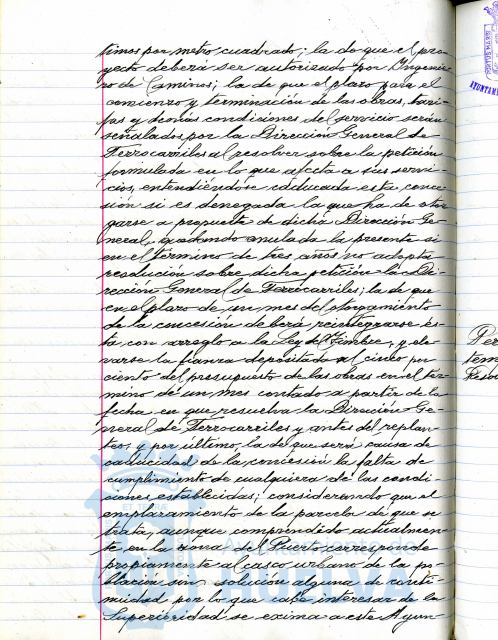 timos por metro cuadrado; la de que el pro-
yecto deberá ser autorizado por Ingenie-
ro de Caminos; la de que el plazo para el
comienzo y terminación de las obras, tari-
fas y demás condiciones del servicio serán
señalados por la Dirección General de
Ferrocarriles al resolver sobre la petición
formulada en lo que afecta a sus servi-
cios, entendiéndose caducada esta conce-
sión si es denegada la que ha de otor-
garse a propuesta de dicha Dirección Ge-
neral, quedando anulada la presente si
en el término de tres años no adopta
resolución sobre dicha petición la Di-
rección General de Ferrocarriles; la de que
en el plazo de un mes del otorgamiento
de la concesión deberá reintegrarse és-
ta con arreglo a la Ley del Timbre, y ele-
varse la fianza depositada al cinco por
ciento del presupuesto de las obras en el tér-
mino de un mes contado a partir de la
fecha en que resuelva la Dirección Ge-
neral de Ferrocarriles y antes del replan-
teo; y por último, la de que será causa de
caducidad de la concesión la falta de
cumplimiento de cualquiera de las condi-
ciones establecidas; considerando que el
emplazamiento de la parcela de que se
trata, aunque comprendido actualmen-
te en la zona del Puerto corresponde
propiamente al casco urbano de la po-
blación sin solución alguna de conti-
nuidad por lo que cabe interesar de la
Superioridad se exima a este Ayun-
Ayuntamiento de
HUELVA
PORTUS MARIS
AYUNTAM
Per
tem